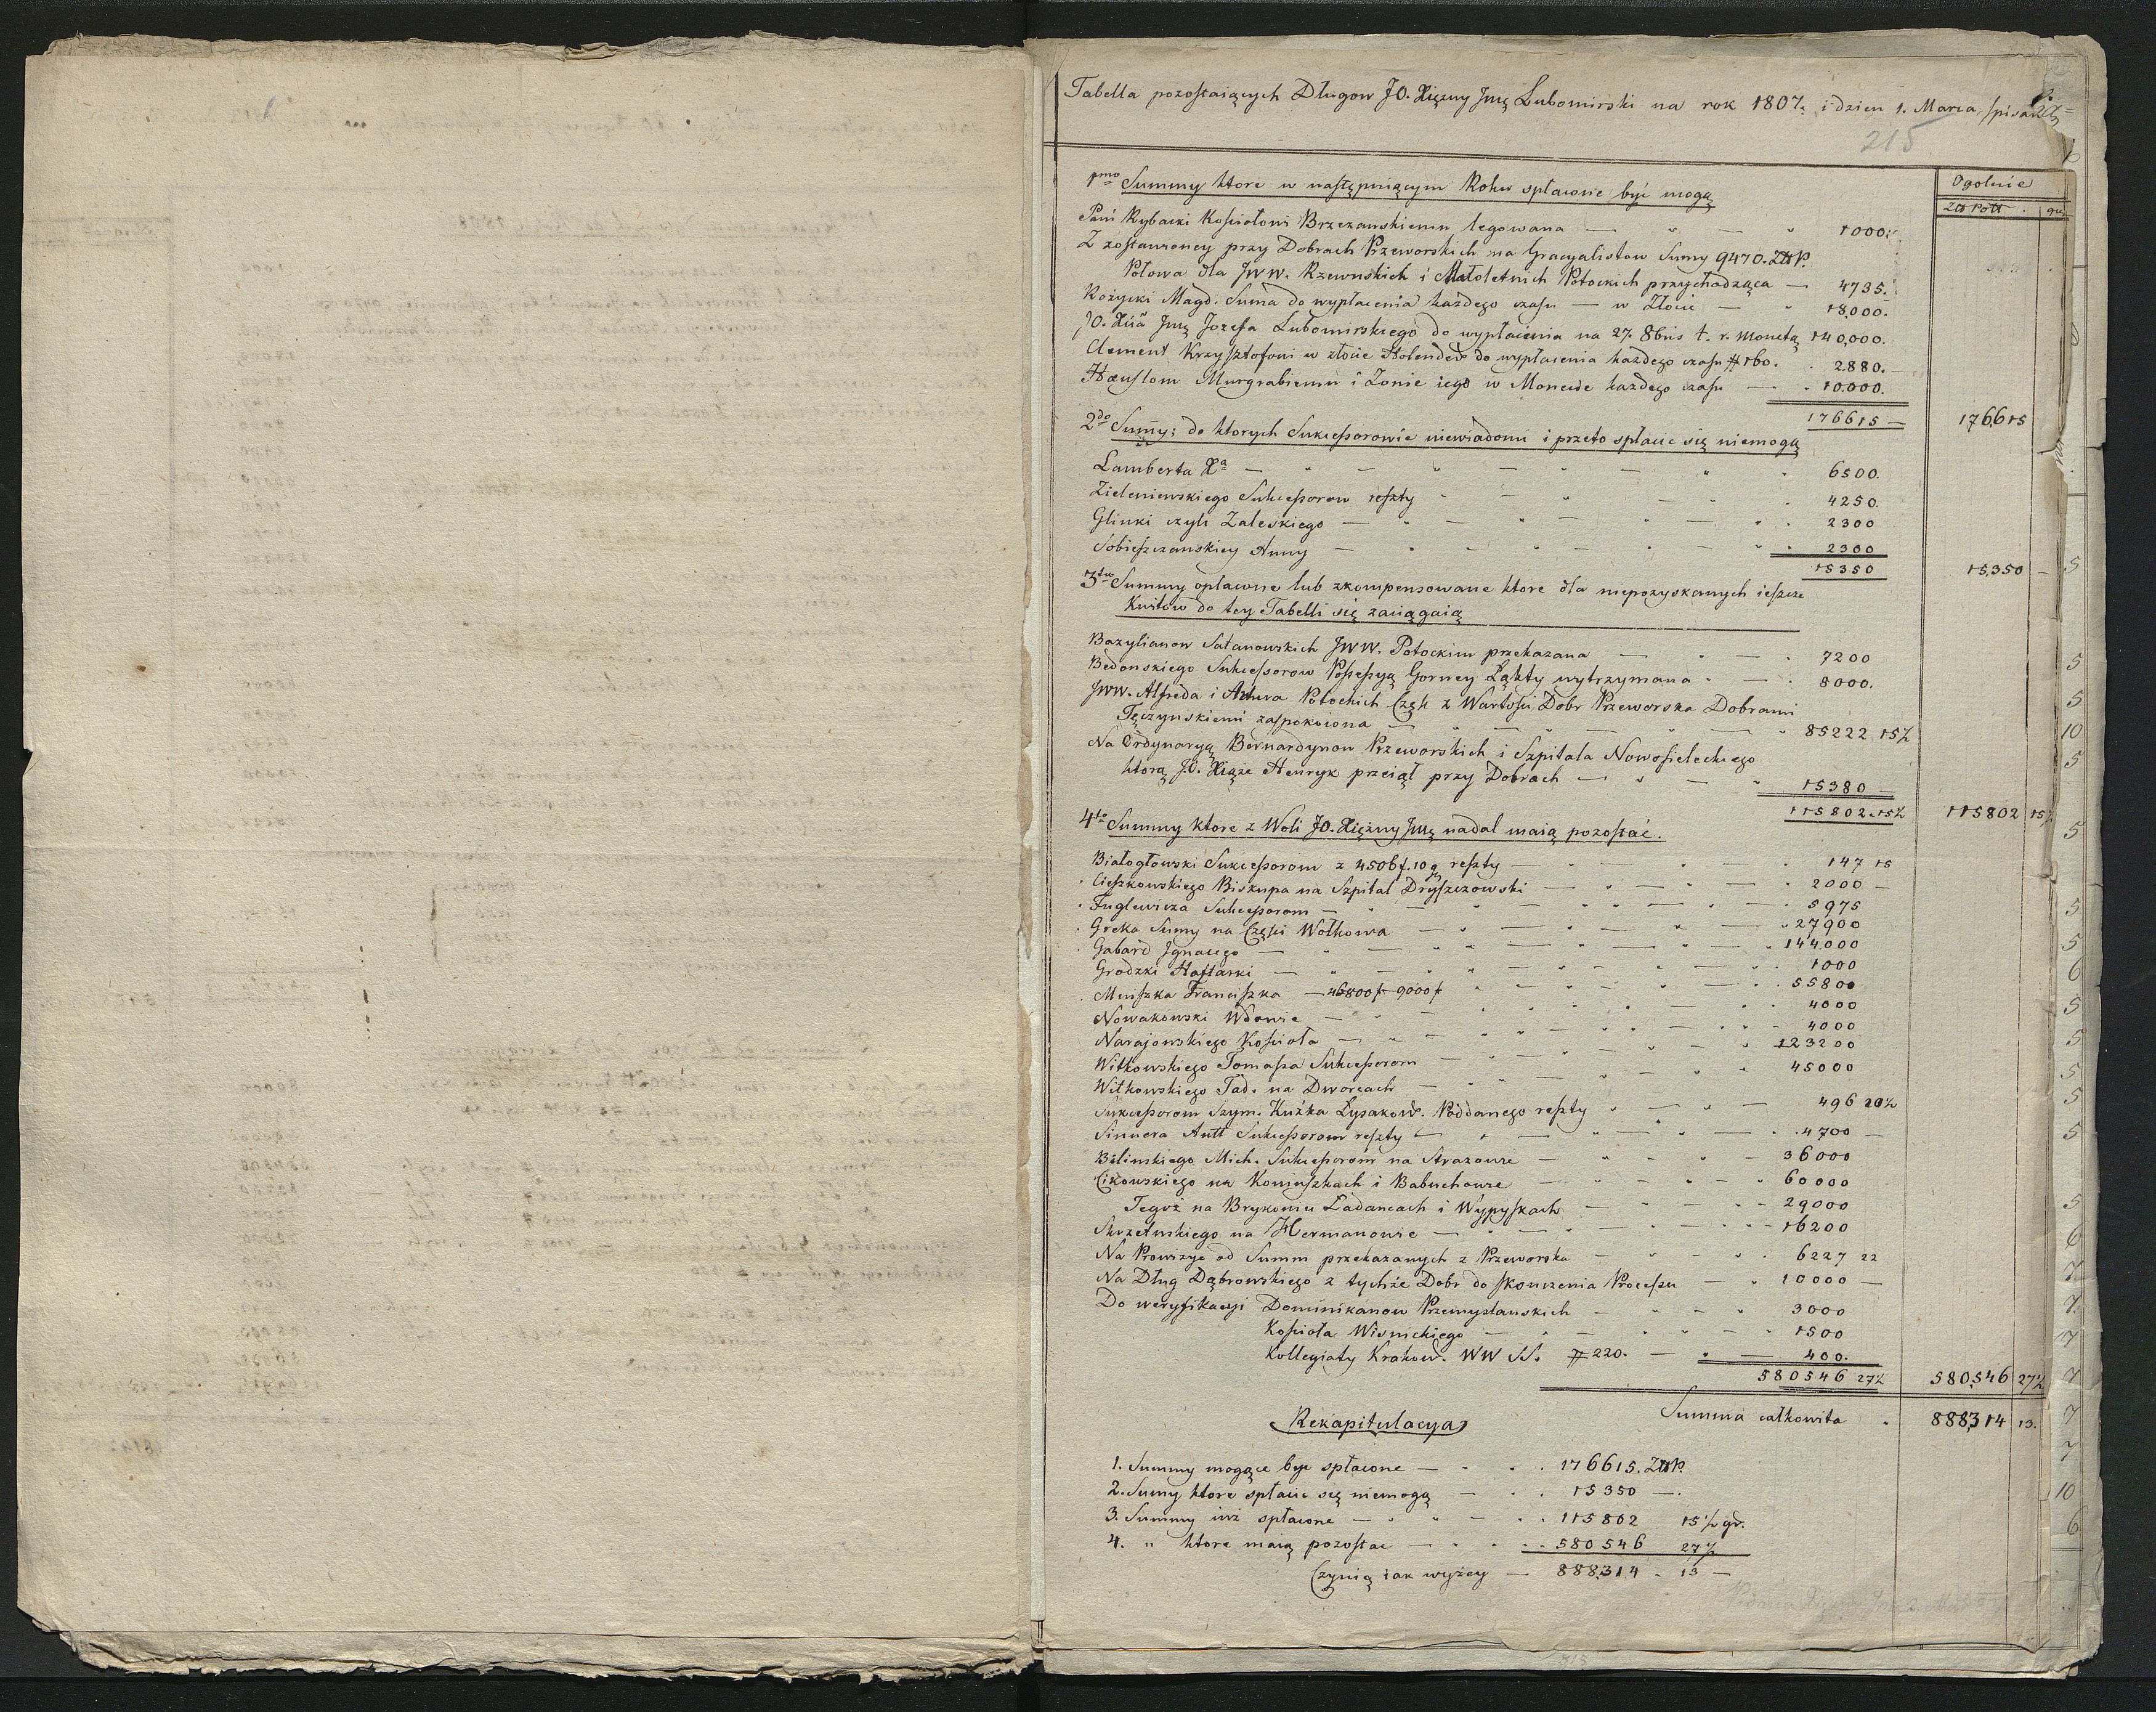 Tabella pozostaiących Długow JO. Xiężny Jmę Lubomirski na rok 1807. i dzien 1. Marca spisana
215
Ogolnie
Złł Poll. gr.
1mo Summy ktore w następuiącym Roku spłacone być mogą
Pani Rybacki Kościołowi Brzezanskiemu legowana — 1000.
Z zostawioney przy Dobrach Przeworskich na Gracyalistow Sumy 9470. ZłłP.
Połowa dla JWW. Rzewuskich i Małoletnich Potockich przychodząca — 4735.
Rożycki Magd. Suma do wypłacenia każdego czasu — w Złocie — 18,000.
JO. Xcia Jmę Jozefa Lubomirskiego do wypłacenia na 27. 8bris t. r. Monetą 140,000.
Clement Krzysztofowi w złocie Holender do wypłacenia każdego czasu # 160. 2880.—
Hæustom Murgrabiemu i Zonie iego w Monecie każdego czasu — 10.000.
176615 — 176615
2do Summy: do ktorych Sukcessorowie niewiadomi i przeto spłacic się niemogą
Lamberta Xa — 6500.
Zieleniewskiego Sukcessorow reszty 4250.
Glinki czyli Zaleskiego — 2300
Sobieszczanskiey Anny — 2300
15350 15,350 —
3tio Summy opłacone lub zkompensowane ktore dla niepozyskanych ieszcze
Kwitow do tey Tabelli się zaciągaią
Bazylianow Satanowskich JWW. Potockim przekazana — 7200
Bedonskiego Sukcessorow Possessyą Gorney Łąkty wytrzymana — 8000.
JWW. Alfreda i Artura Potockich Częsc z Wartosci Dobr Przeworska Dobrami
Tęczynskiemi zaspokoiona — 85222 15½
Na Ordynaryą Bernardynow Przeworskich i Szpitala Nowosieleckiego
ktorą J.O. Xiąże Henryk przeiął przy Dobrach — 15380 —
115802.15½ 115802 15½
4to Summy ktore z Woli JO. Xiężny Jmę nadal maią pozostać.
Białogłowski Sukcessorom z 4506 f. 10 g reszty — 147 15
Cieszkowskiego Biskupa na Szpital Dryszczowski — 2000 —
Fuglewicza Sukcessorom — 5975
Greka Sumy na Części Wołkowa — 27900
Gabard Jgnacego — 144.000
Grodzki Haftarki — 1000
Mniszka Franciszka — 46800 f — 9000 f 55800
Nowakowski Wdowie — 4000
Narajowskiego Kościoła — 4000
Witkowskiego Tomasza Sukcessorom — 123200
Witkowskiego Tad. na Dworcach — 45000
Sukcessorom Szym. Kuźka Łysakow. Poddanego reszty — 496 20½
Sinnera Antt Sukcessorow reszty — 4700 —
Bilinskiego Mich. Sukcessorom na Strazowie — 36000
Cikowskiego na Koniuszkach i Babuchowie — 60000
Tegoż na Brykoniu Ładancach i Wypyskach — 29000
Skrzetuskiego na Hermanowie — 16200
Na Prowizye od Summ przekazanych z Przeworska — 6227 22
Na Dług Dąbrowskiego z tychże Dobr do skonczenia Processu — 10000 —
Do weryfikacyi Dominikanow Przemyslanskich — 3000
Kościoła Wisnickiego — 1500
Kollegiaty Krakow. WW SS. # 220. — 400.
580546 27½ 580,546 27½
Summa całkowita 888,314 13.
Rekapitulacya
1. Summy mogące być spłacone — 176615. ZłłP.
2. Sumy ktore spłacic się niemogą — 15350 —
3. Summy iuż spłacone — 115802 15½ gr.
4. " ktore maią pozostac — 580546 27½
Czynią iak wyżey — 888,314 - 13 —